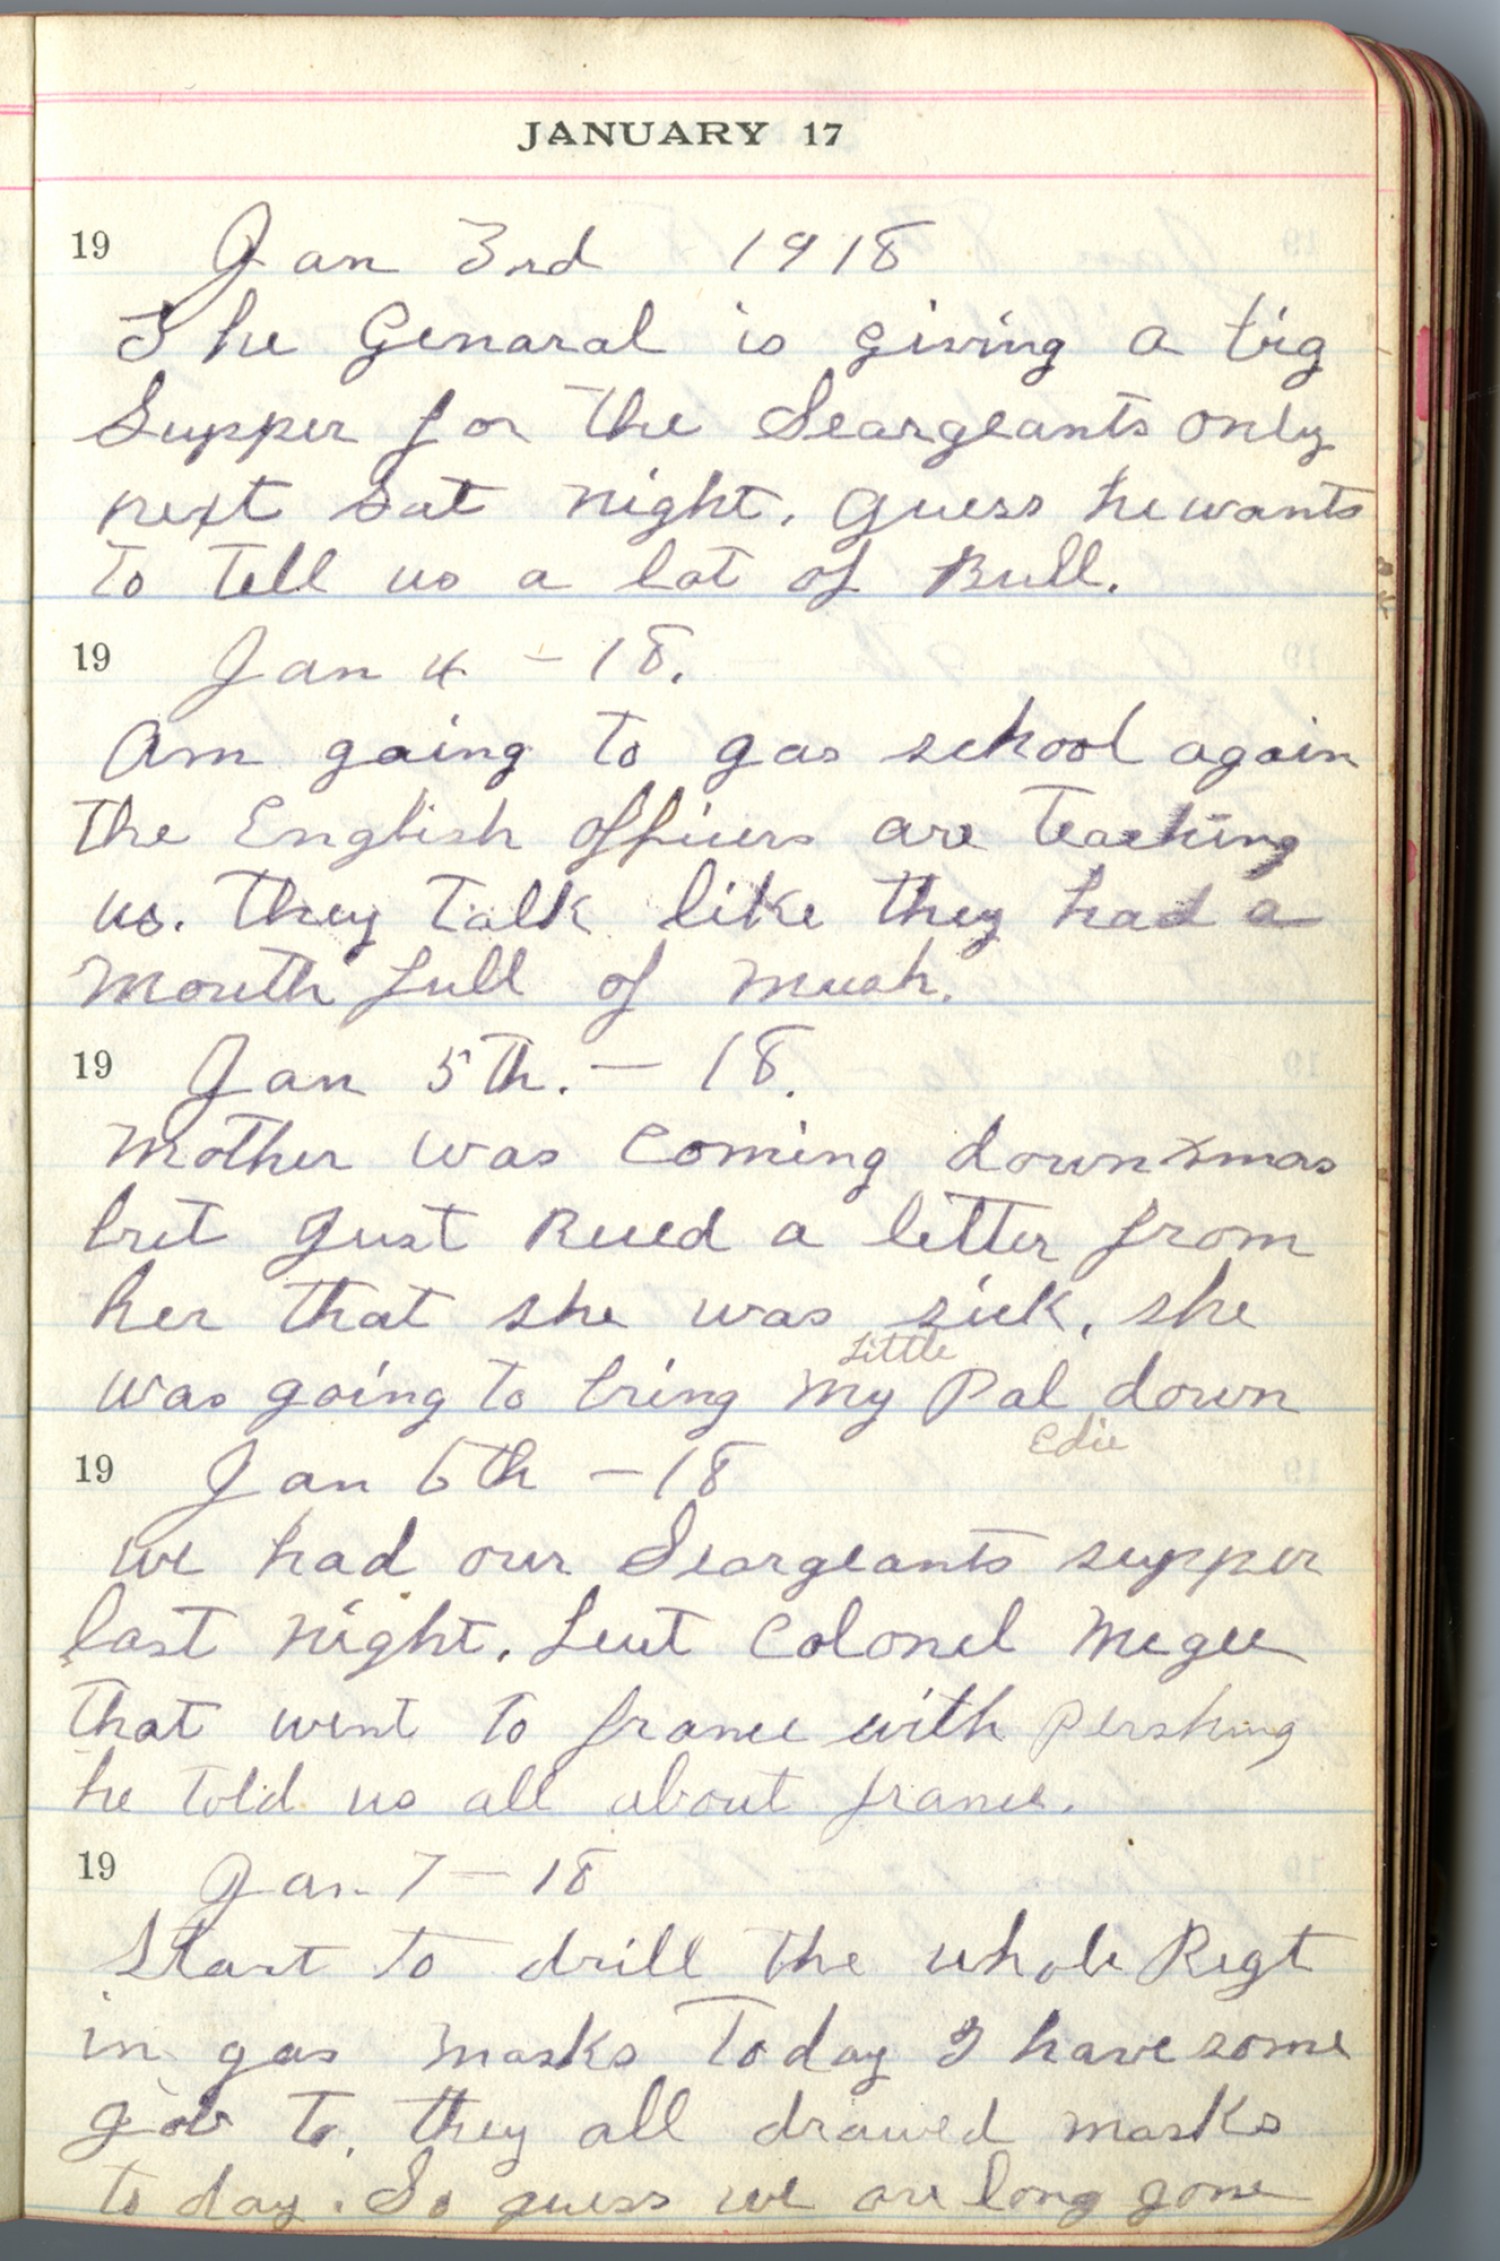 JANUARY 17
19 Jan 3rd 1918
The Genaral is giving a big
Supper for the Seargeants only
next Sat night. guess he wants
to tell us a lot of Bull.
19 Jan 4 - 18.
Am going to gas school again
the English officers are teaching
us. they talk like they had a
mouth full of mush.
19 Jan 5th. - 18.
Mother was coming down xmas
but just Recd a letter from
her that she was sick. she
was going to bring my Little Pal down
Edie
19 Jan 6th - 18
we had our Seargeants supper
last night. Leut Colonel Megee
that went to france with Pershing
he told us all about france.
19 Jan 7 - 18
Start to drill the whole Regt
in gas masks today I have some
job to. they all drawed masks
to day. So guess we are long gone